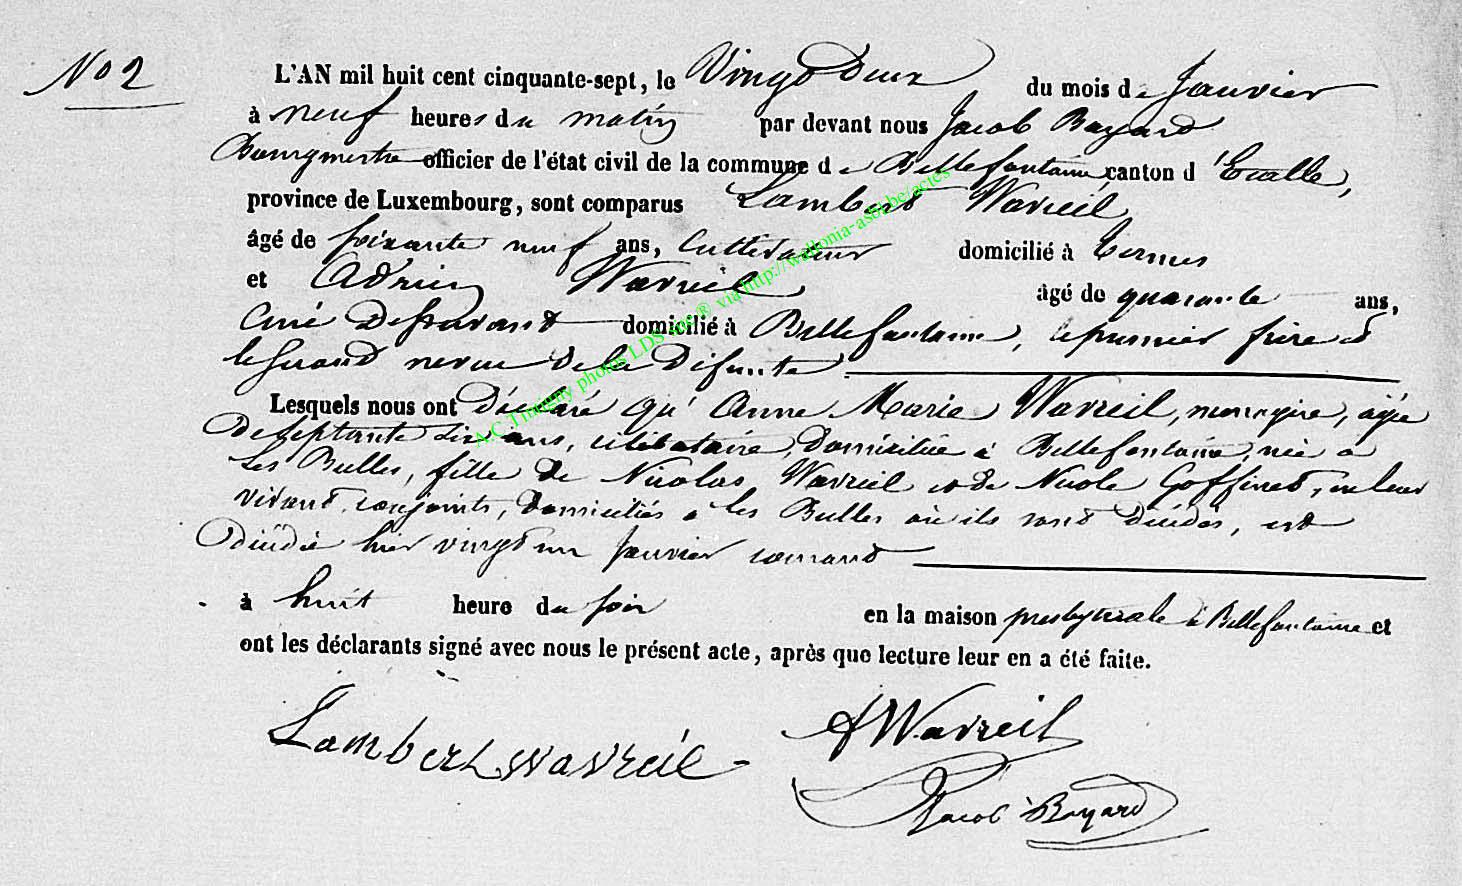 No 2
L'AN mil huit cent cinquante-sept, le Vingt Deux du mois de Janvier
à neuf heures du matin par devant nous Jacob Bayard
Bourgmestre officier de l'état civil de la commune de Bellefontaine canton d'Etalle,
province de Luxembourg, sont comparus Lambert Wavreil
âgé de soixante neuf ans, Cultivateur domicilié à Termes
et Adrien Wavreil âgé de quarante ans,
Curé Desservant domicilié à Bellefontaine, le premier frère et
le second neveu de la Défunte
Lesquels nous ont Déclaré qu'Anne Marie Wavreil, ménagère, âgée
De septante six ans, célibataire, Domiciliée à Bellefontaine, née à
Les Bulles, fille de Nicolas Wavreil et de Nicole Goffinet, en leur
vivant conjoints, Domiciliés à les Bulles où ils sont décédés, est
Décédée hier vingt un Janvier courant
à huit heure du soir en la maison presbytérale à Bellefontaine et
ont les déclarants signé avec nous le présent acte, après que lecture leur en a été faite.
Lambert Wavreil
A Wavreil
Jacob Bayard
A.C Tintigny photos LDS inc ® via http://wallonia-asbl.be/actes